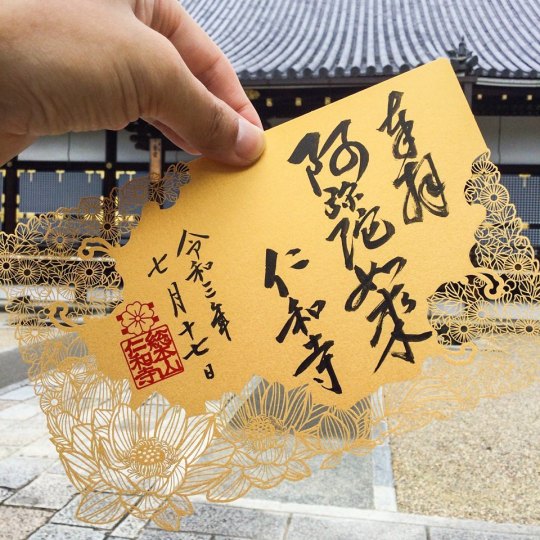 奉拝
阿弥陀如来
仁和寺
令和三年
七月十七日
総本山
仁和寺